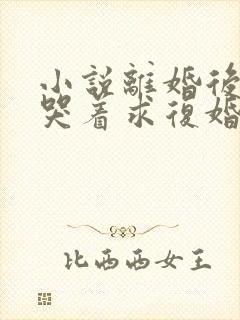 小說離婚後
哭着求復婚
比西西女王